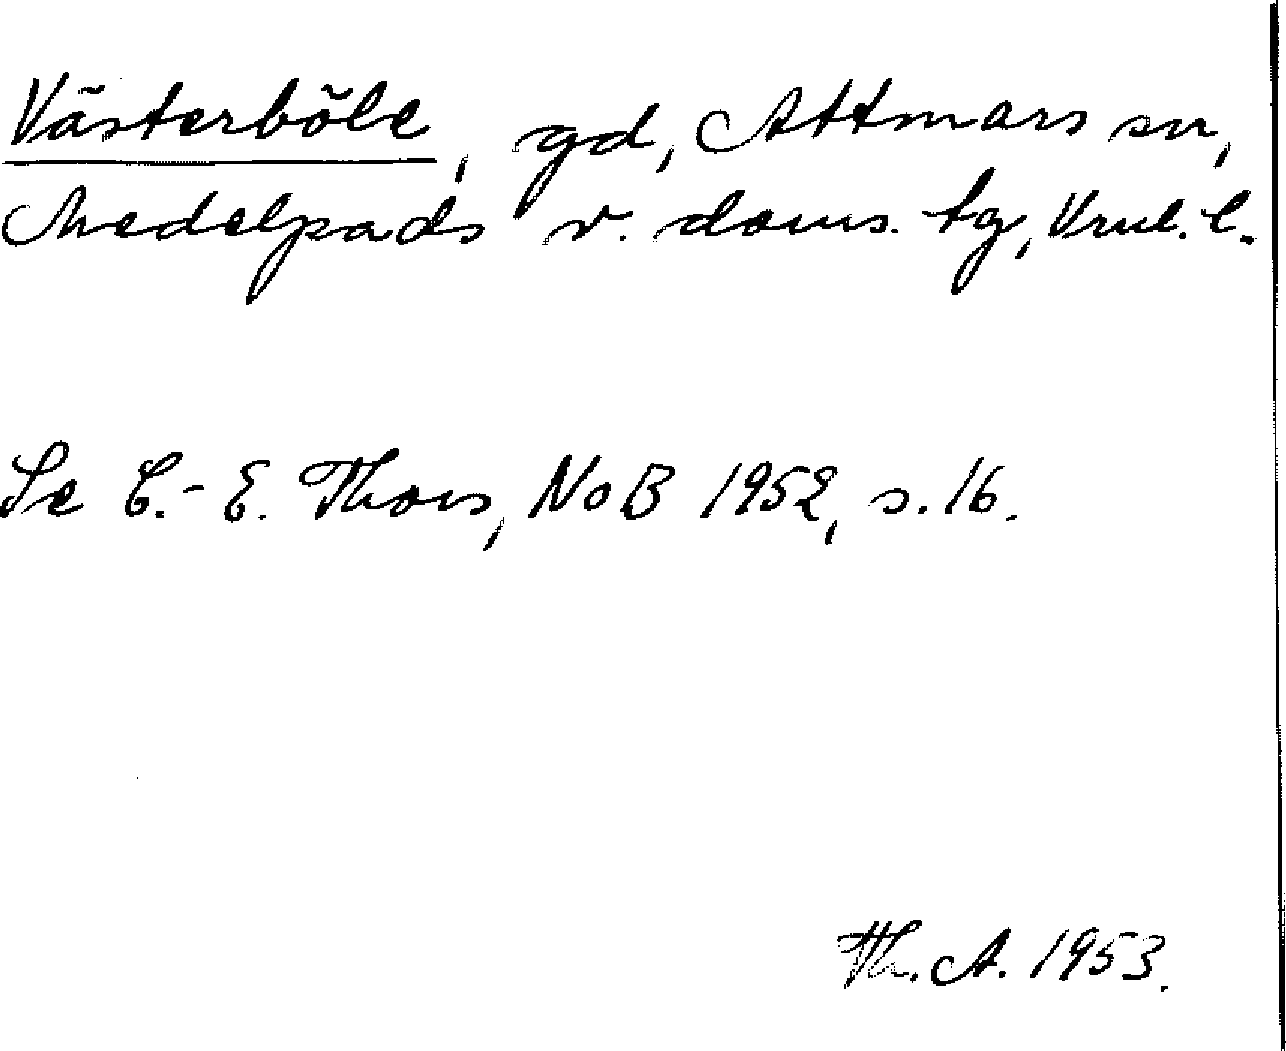 Västerböle, gd, Attmars sn,
Medelpads v. doms. tg, Vrnl. l.
Se C.-E. Thors, NoB 1952, s. 16.
Th. A. 1953.